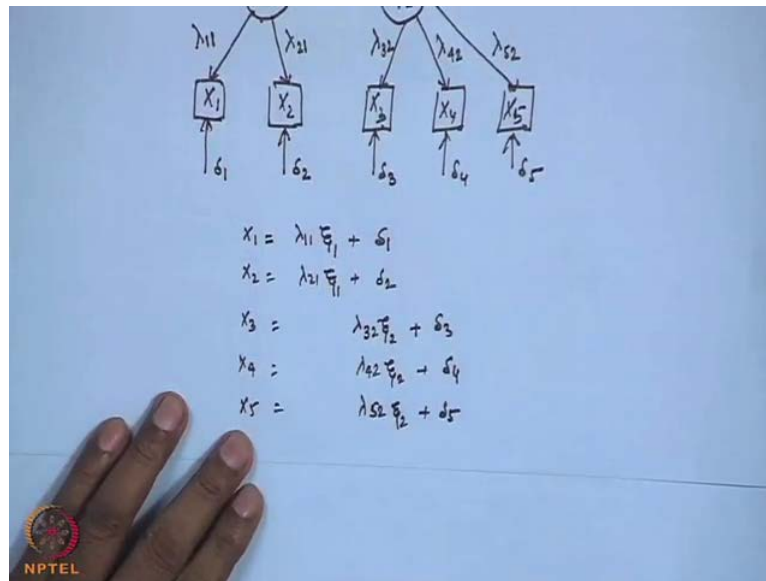 λ11 λ21 λ32 λ42 λ52
X1 X2 X3 X4 X5
δ1 δ2 δ3 δ4 δ5
X1 = λ11 ξ1 + δ1
X2 = λ21 ξ1 + δ2
X3 = λ32 ξ2 + δ3
X4 = λ42 ξ2 + δ4
X5 = λ52 ξ2 + δ5
NPTEL